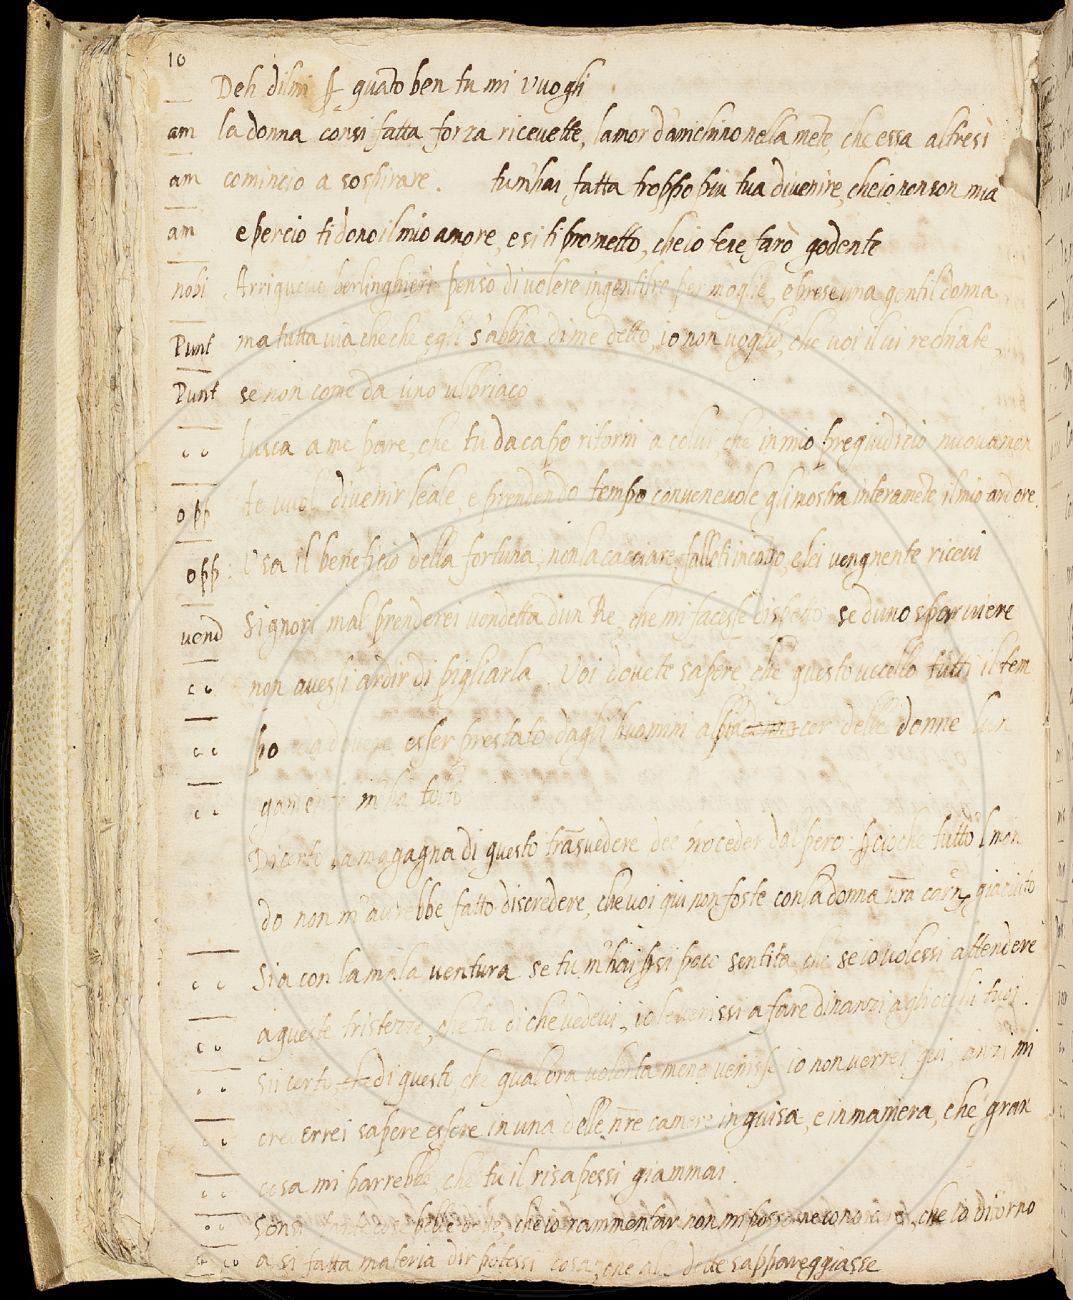 10
Deh dilmi se guato ben tu mi vuogli
am la donna corsi fatta forza ricevette, lamor danichino nella mete, che essa altresi
am comincio a sospirare. tu mhai fatta troppo piu tua divenire, che io non son mia
am e percio ti dono il mio amore, e si ti prometto, che io tene farò godente
nobi Arriguccio berlinghieri pensò di volere ingentilire per moglie, e prese una gentil donna
Punt ma tutta via che che egli s'abbia di me detto, io non voglio, che voi il vi rechiate,
Punt se non come da uno ubbriaco
c c lusca a me pare, che tu da capo ritorni a colui che in mio pregiudicio nuovamen
opp te vuol divenir leale, e prendendo tempo convenevole gli mostra interamete il mio ardore.
opp. Usa il beneficio della fortuna, non la cacciare, falleti incotro, e lei vengnente ricevi
vend Signori mal prenderei vendetta dun Re, che mi facesse dispetto se duno sparviere
c c non avessi ardir di pigliarla. Voi dovete sapere che questo uccello tutti il tem
c c po da dovere esser prestato dagli huomini al piacer delle donne lun
c c gamente m'ha tolto
Di certo la magagna di questo trasvedere dee proceder dal pero: percioche tutto l mon
do non m'avrebbe fatto discredere, che voi qui non foste con la donna vra carn giaciuto
c c Sia con la mala ventura se tu m'hai per si poco sentita che se io volessi attendere
c c a queste tristezze, che tu di che vedevi, io le venissi a fare dinanzi agli occhi tuoi.
c c Sii certo di questo che qualora volonta mene venisse io non verrei qui, anzi mi
c c crederrei sapere essere in una delle nre camere in guisa, e in maniera, che gran
c c cosa mi parrebbe, che tu il risapessi giammai.
c c belle che io rammentar non mi posso ne conoscere, che io di torno
c c a si fatta materia dir potessi cosa, che alle dette s'appareggiasse